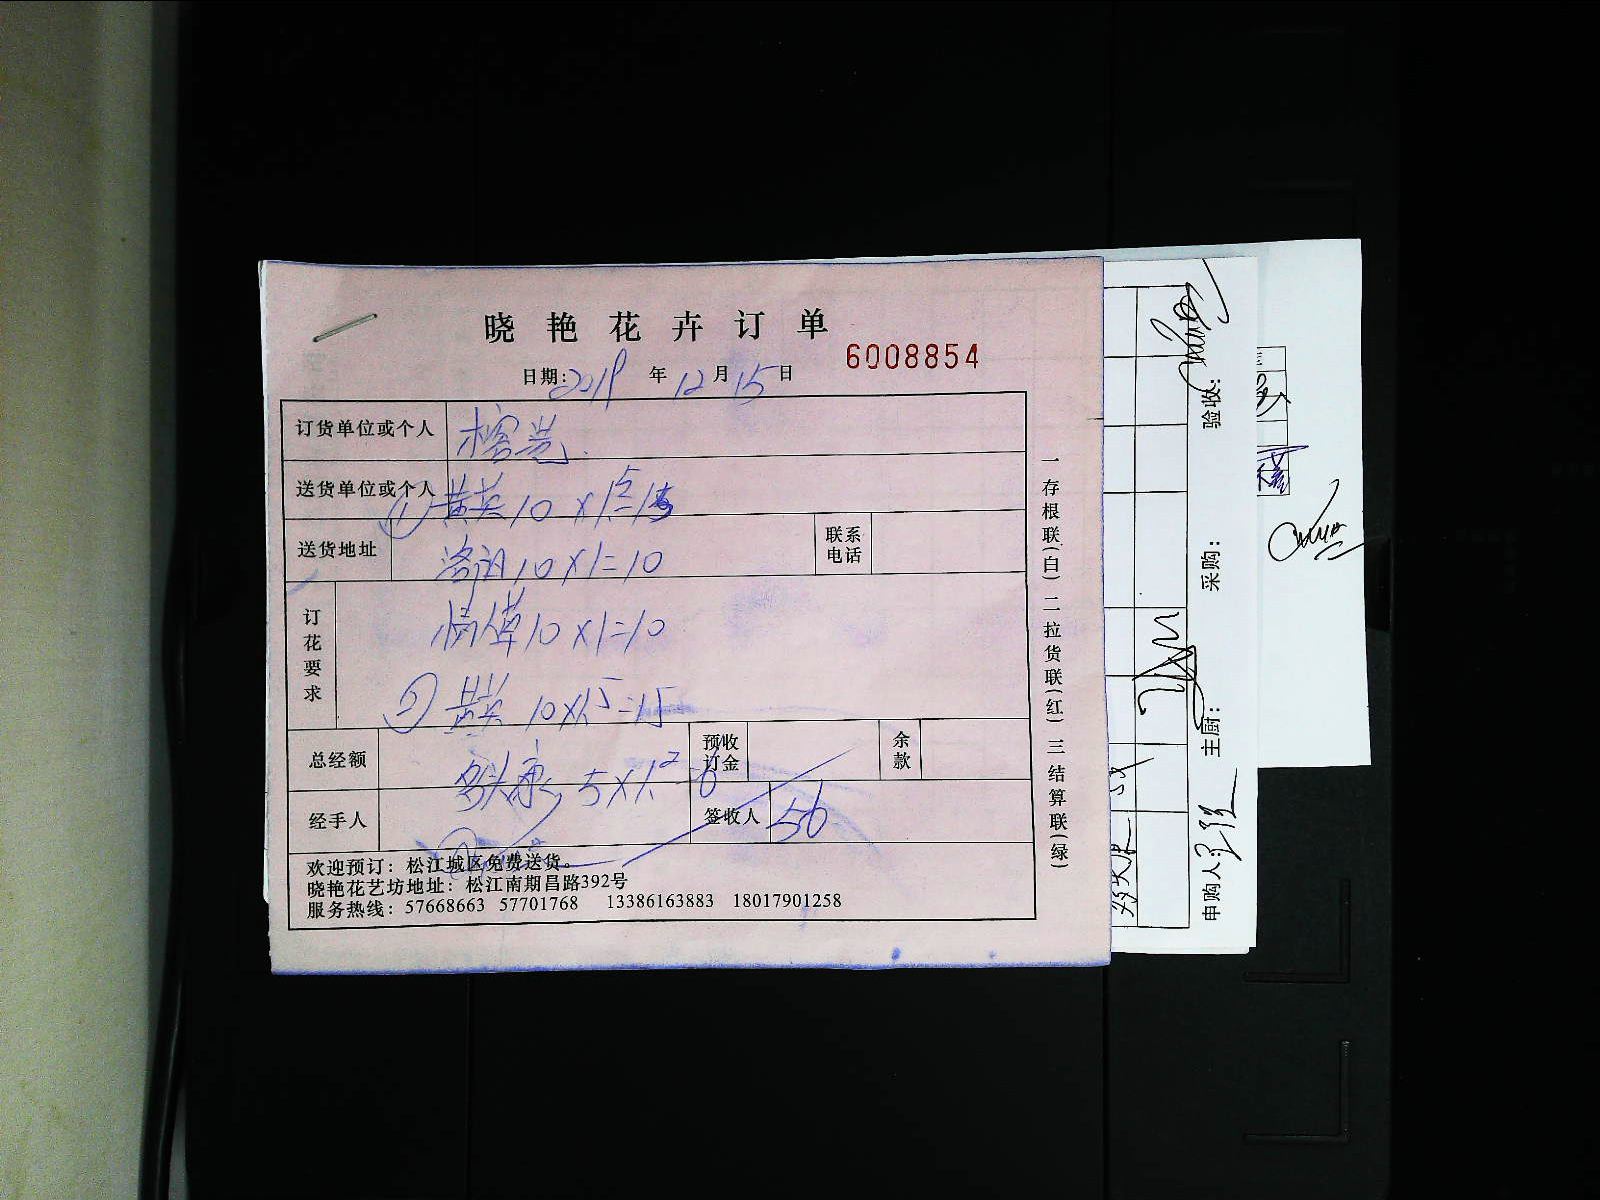 晓艳花卉订单
日期: 2019 年 12 月 15 日
6008854
订货单位或个人
送货单位或个人
① 黄英 10 x 1.5=15
送货地址
10 x 1=10
联系电话
订花要求
情人草 10 x 1=10
② 黄英 10 x 1.5=15
总经额
预收订金
余款
5 x 1.2=6
经手人
签收人
56
欢迎预订：松江城区免费送货。
晓艳花艺坊地址：松江南期昌路392号
服务热线：57668663 57701768 13386163883 18017901258
一存根联(白) 二拉货联(红) 三结算联(绿)
验收：
采购：
主厨：
申购人：